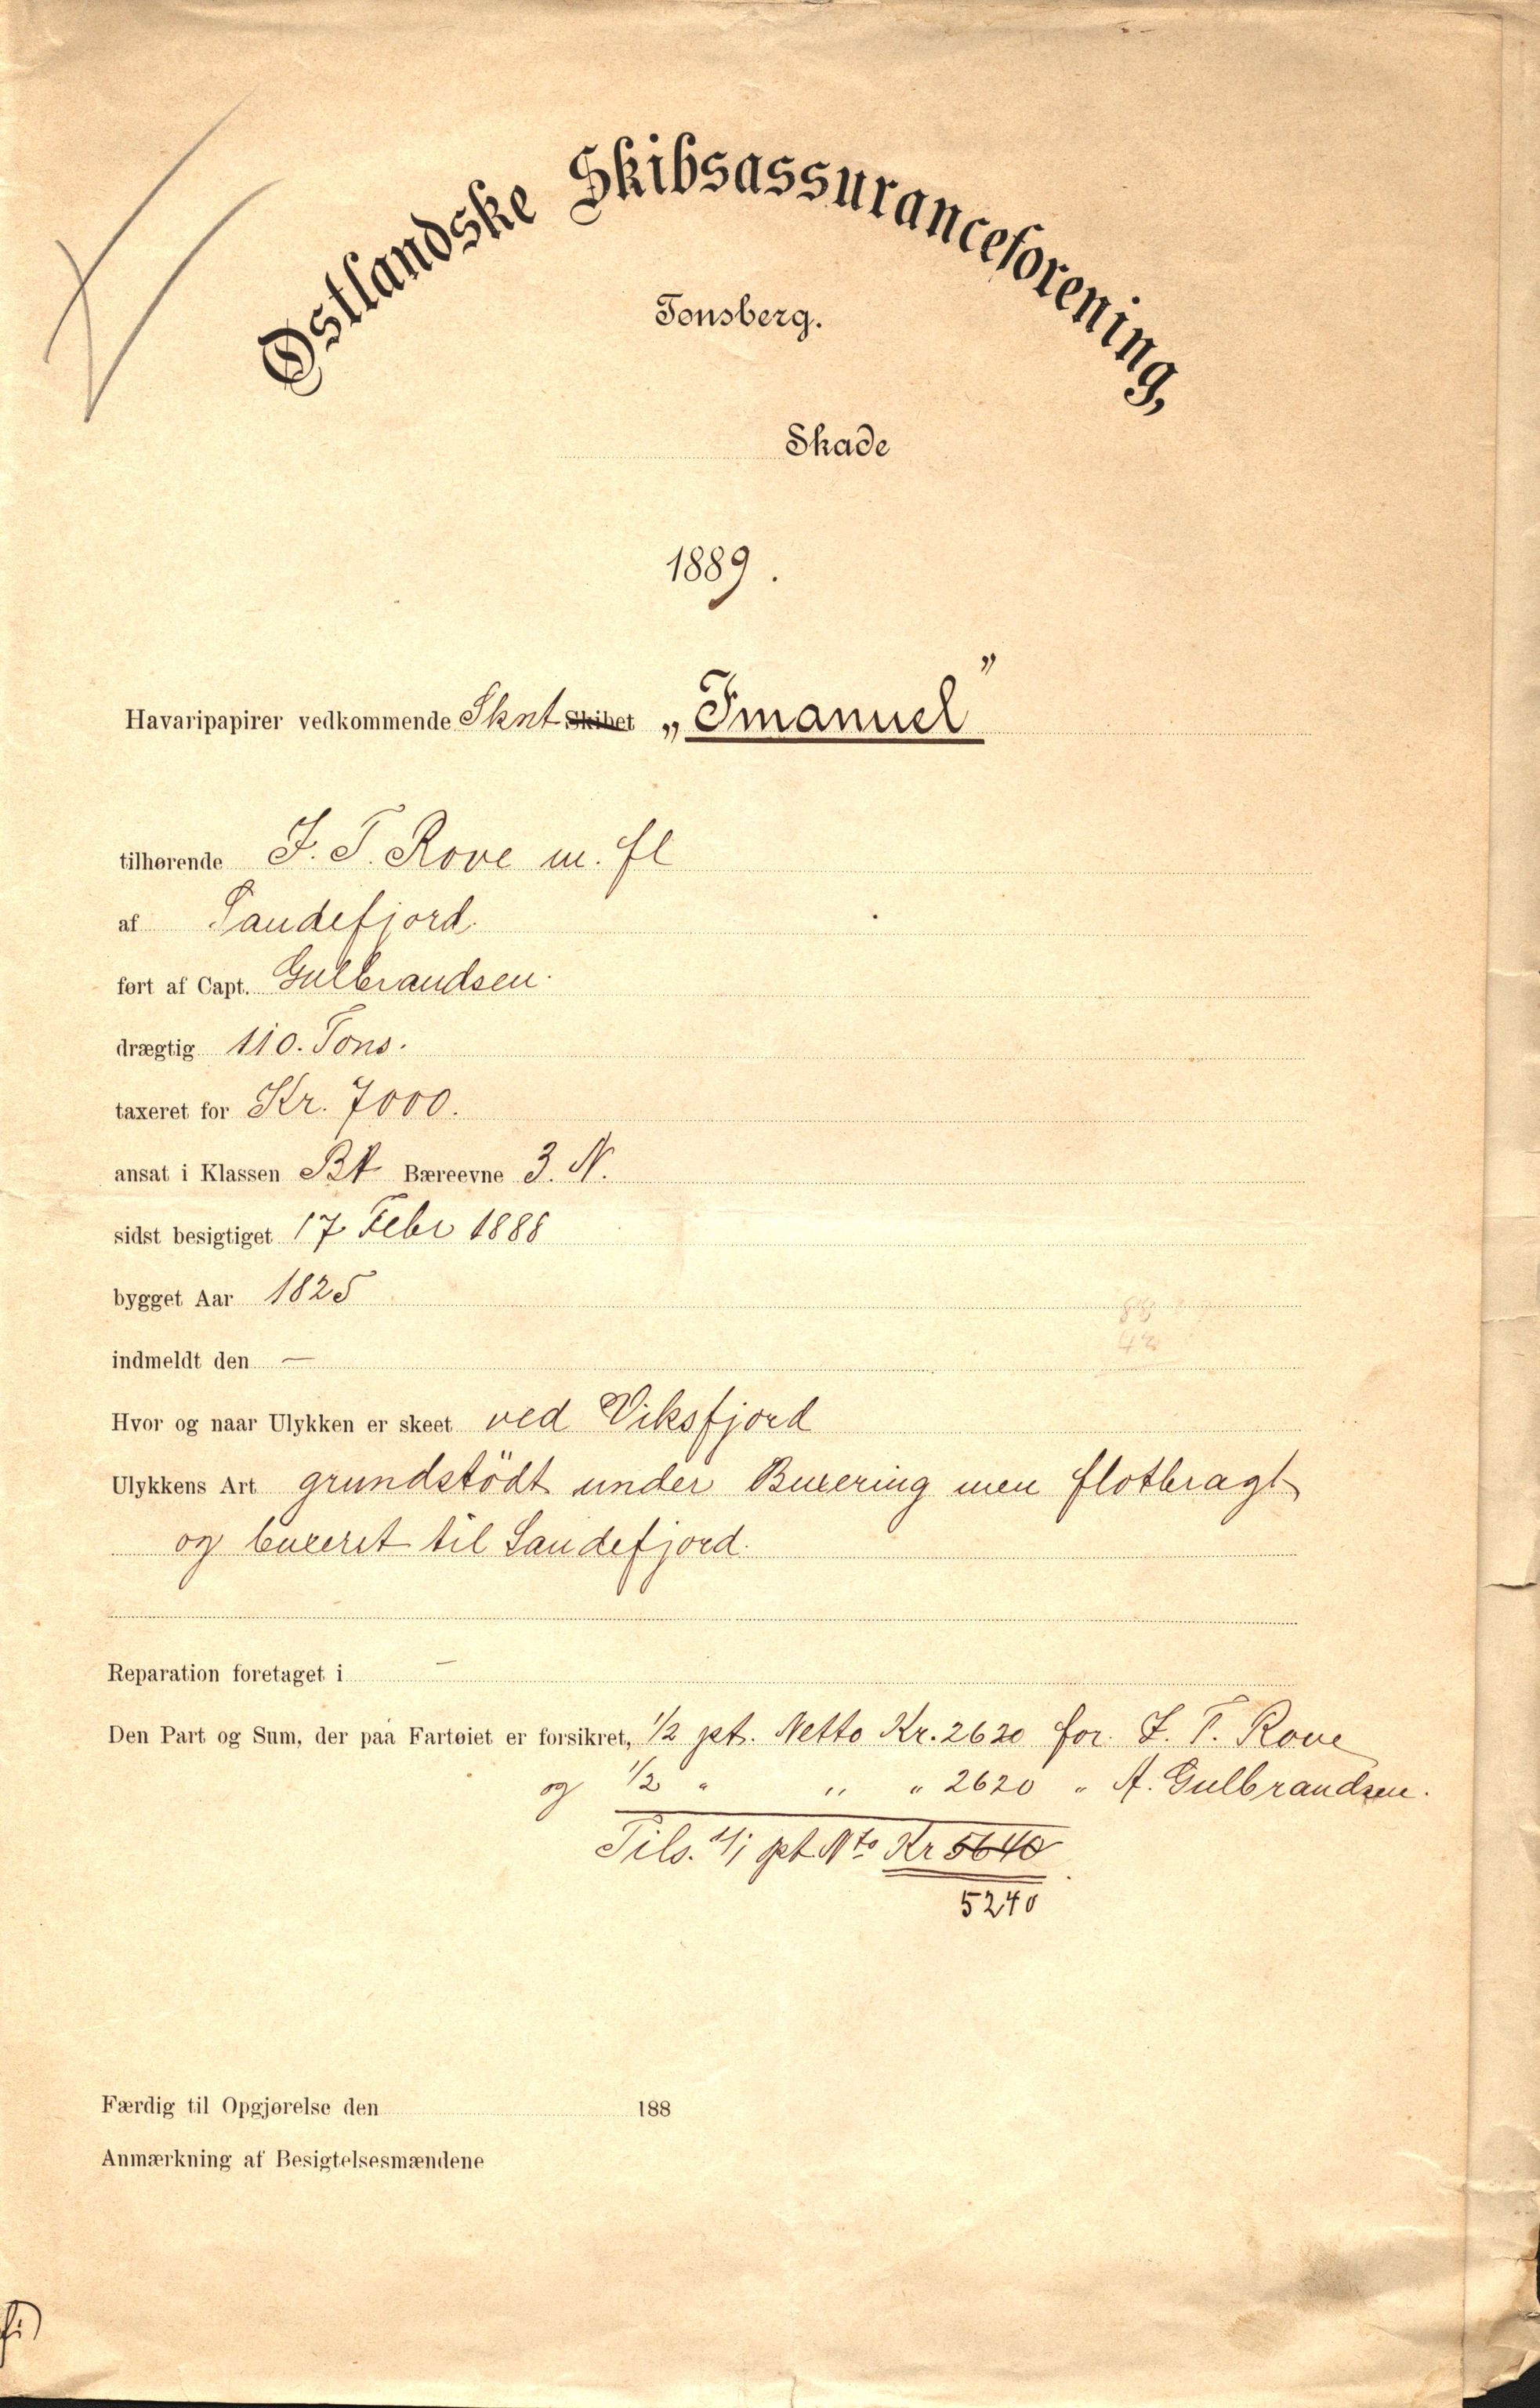 Østlandske Skibsassuranceforening,
Tonsberg.
Skade
1889.
Havaripapirer vedkommende Sknt Skibet „Imanuel”
tilhørende J. T. Rove m. fl
af Sandefjord.
ført af Capt. Gulbrandsen.
drægtig 110. Tons.
taxeret for Kr. 7000.
ansat i Klassen BA Bæreevne 3. N.
sidst besigtiget 17 Febr 1888
bygget Aar 1825
indmeldt den —
Hvor og naar Ulykken er skeet ved Viksfjord
Ulykkens Art grundstödt under Buxering men flotbragt
og buxeret til Sandefjord.
Reparation foretaget i —
Den Part og Sum, der paa Fartøiet er forsikret, 1/2 pt. Netto Kr. 2620 for J. T. Rove
og 1/2 " " " 2620 " A. Gulbrandsen.
Tils. 1/1 pt Nto Kr 5640
5240
Færdig til Opgjørelse den 188
Anmærkning af Besigtelsesmændene